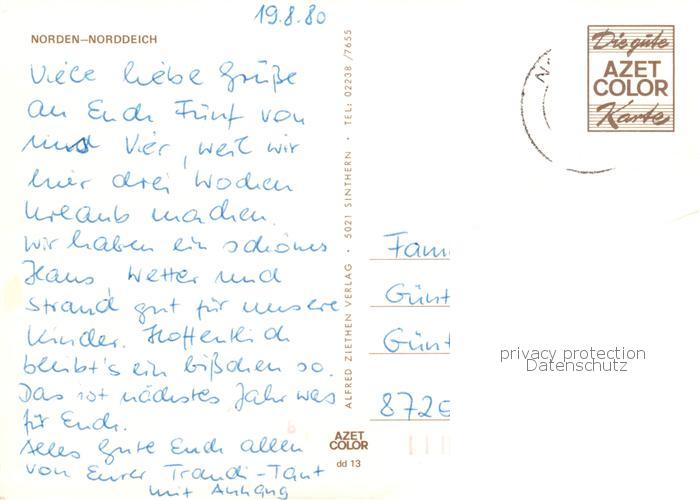 19.8.80
NORDEN–NORDDEICH
Viele liebe Grüße
an Euch Fünf von
uns Vier, weil wir
hier drei Wochen
Urlaub machen.
Wir haben ein schönes
Haus, Wetter und
Strand gut für unsere
Kinder. Hoffentlich
bleibt's ein bißchen so.
Das ist nächstes Jahr was
für Euch.
Alles Gute Euch allen
von Eurer Traudi-Tant
mit Anhang
ALFRED ZIETHEN VERLAG · 5021 SINTHERN · TEL: 02238/7655
AZET
COLOR
dd 13
Die gute
AZET
COLOR
Karte
Fami
Günt
Günt
8720
privacy protection
Datenschutz